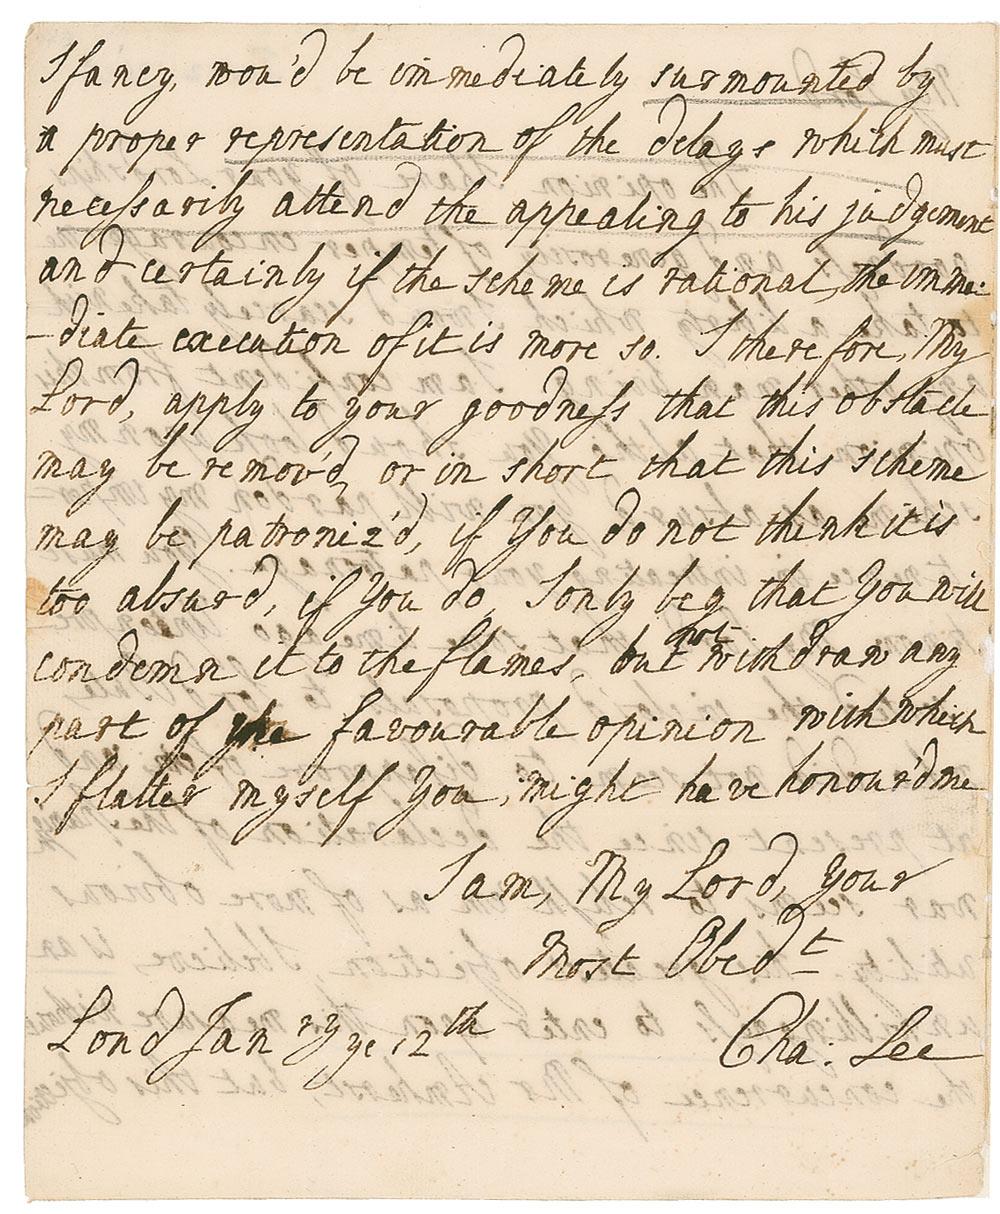 I fancy, wou'd be immediately surmounted by
a proper representation of the delays which must
necessarily attend the appealing to his judgement
and certainly if the scheme is rational, the imme:
-diate execution of it is more so. I therefore, My
Lord, apply to your goodness that this obstacle
may be remov'd, or in short that this scheme
may be patroniz'd, if You do not think it is
too absurd, if You do, I only beg that You will
condemn it to the flames, but not withdraw any
part of the favourable opinion with which
I flatter myself You, might have honour'd me
I am, My Lord, Your
Most Obedt
Lond Janry ye 12th Cha: Lee